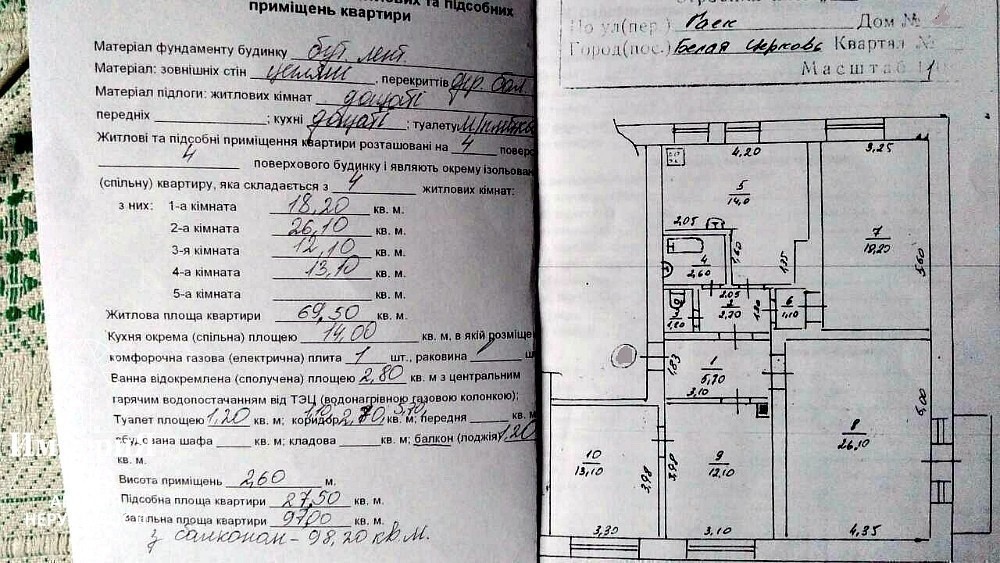 житлових та підсобних
приміщень квартири
Матеріал фундаменту будинку бут. лент.
Матеріал: зовнішніх стін цеглян , перекриттів дер. бал.
Матеріал підлоги: житлових кімнат дощаті
передніх ; кухні дощаті ; туалету
Житлові та підсобні приміщення квартири розташовані на 4 повер
4 поверхового будинку і являють окрему ізольован
(спільну) квартиру, яка складається з 4 житлових кімнат:
з них: 1-а кімната 18,20 кв. м.
2-а кімната 26,10 кв. м.
3-я кімната 12,10 кв. м.
4-а кімната 13,10 кв. м.
5-а кімната кв. м.
Житлова площа квартири 69,50 кв. м.
Кухня окрема (спільна) площею 14,00 кв. м, в якій розміще
комфорочна газова (електрична) плита 1 шт., раковина ш
Ванна відокремлена (сполучена) площею 2,80 кв. м з центральним
гарячим водопостачанням від ТЭЦ (водонагрівною газовою колонкою);
Туалет площею 1,20 кв. м; коридор 1,10 2,70, 5,70 кв. м; передня кв. м
шафа кв. м; кладова кв. м; балкон (лоджія) 1,20
кв. м.
Висота приміщень 2,60 м.
Підсобна площа квартири 27,50 кв. м.
загальна площа квартири 97,00 кв. м.
з балконом - 98,20 кв.м.
По ул(пер.) Раск Дом №
Город(пос.) Белая Церковь Квартал №
Масштаб 1:
4,20
3,25
5
14,0
2,05
7
18,20
5,60
4
2,60
1,60
1,35
2,05
2
2,20
6
1,10
3
1,20
1
5,70
1,83
3,10
6,00
8
26,10
10
13,10
3,98
3,98
9
12,10
3,30
3,10
4,35